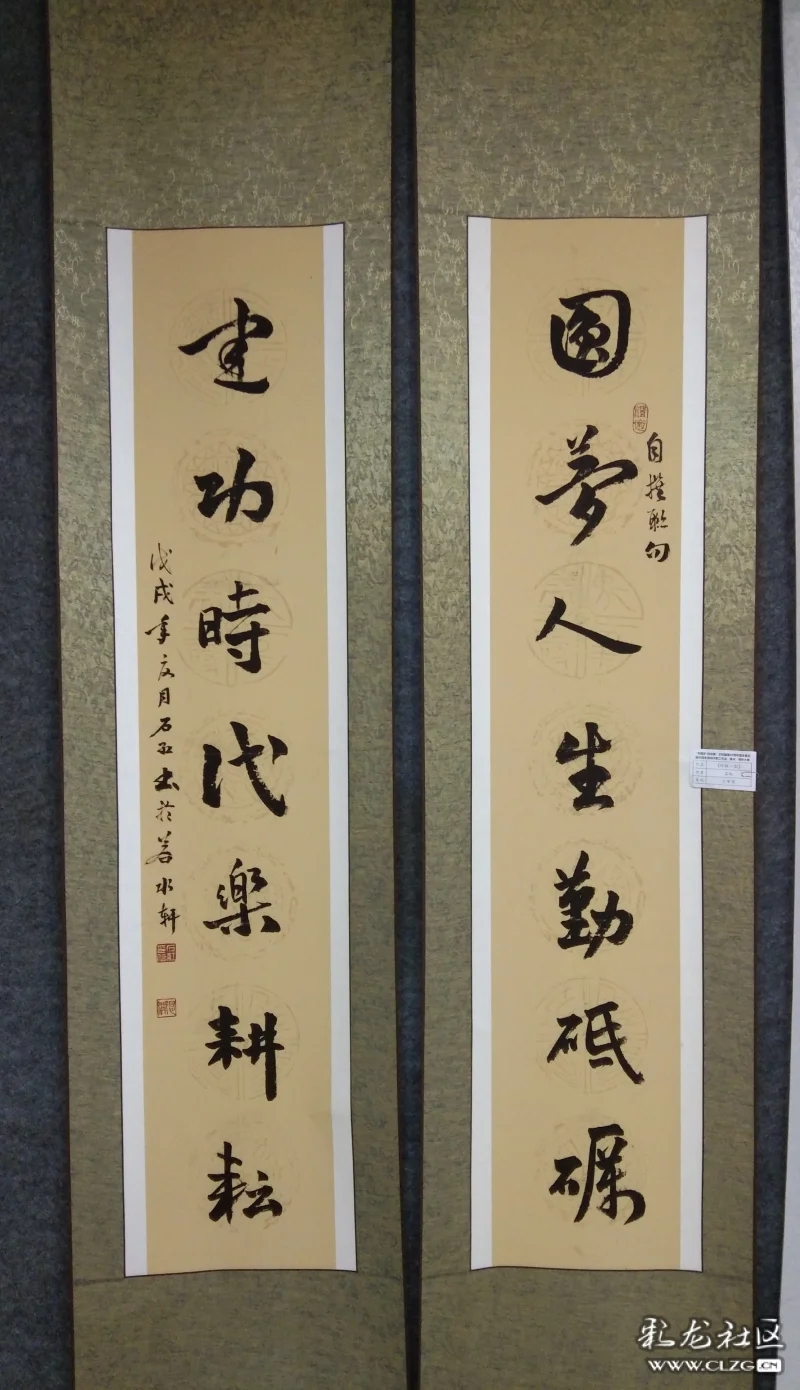 圆夢人生勤砥礪
自撰聯句
建功時代樂耕耘
戊戌年夏月石红书於若水轩
彩龙社区
WWW.CLZG.CN